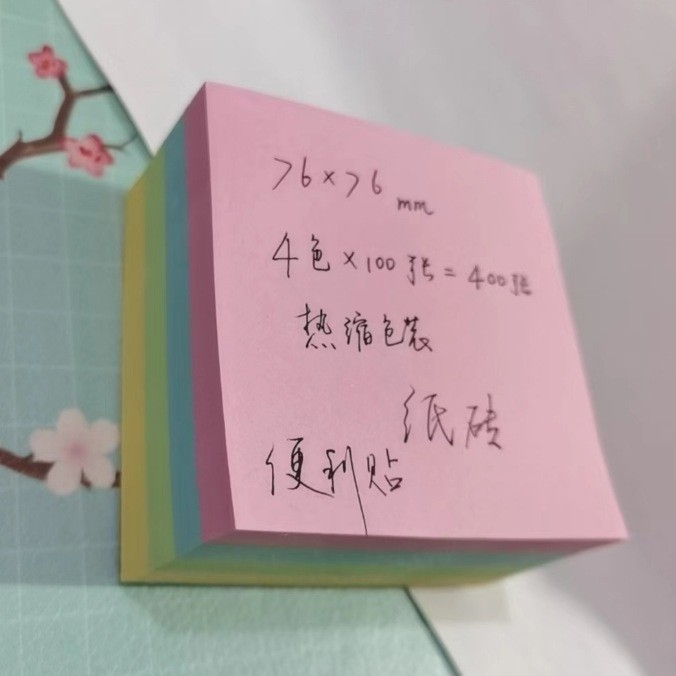 76×76 mm
4色×100张=400张
热缩包装
纸砖
便利贴